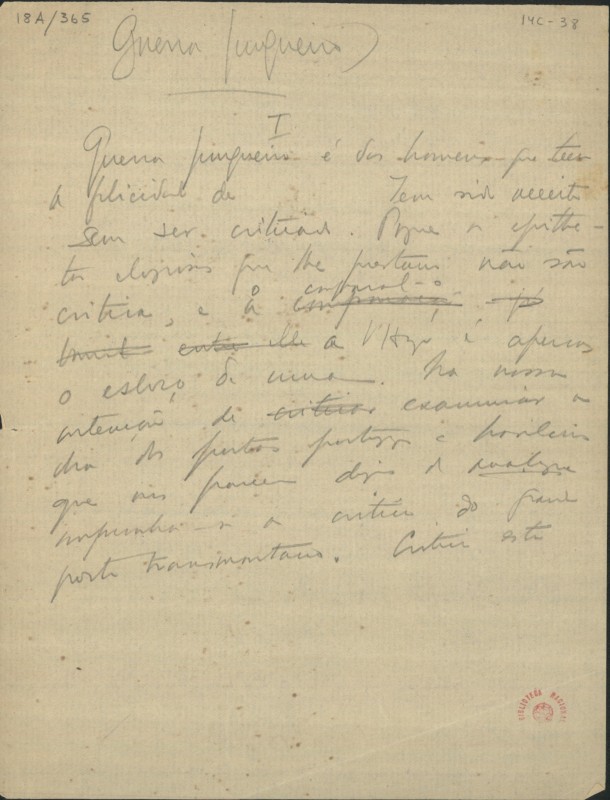 18A/365
14C-38
Guerra Junqueiro
I
Guerra Junqueiro é dos homens que teem
a felicidade de Tem sido acceite
sem ser criticado. Porque os epithe-
tos elogiosos que lhe prestam não são
critica, e o comparal-o
a V. Hugo é apenas
o esboço de uma. Na nossa
intenção de criticar examinar a
obra dos poetas portuguezes e brasileiros
que nos parecem dignos de analyse
impunha-se a critica do grande
poeta transmontano. Critica esta
BIBLIOTECA NACIONAL